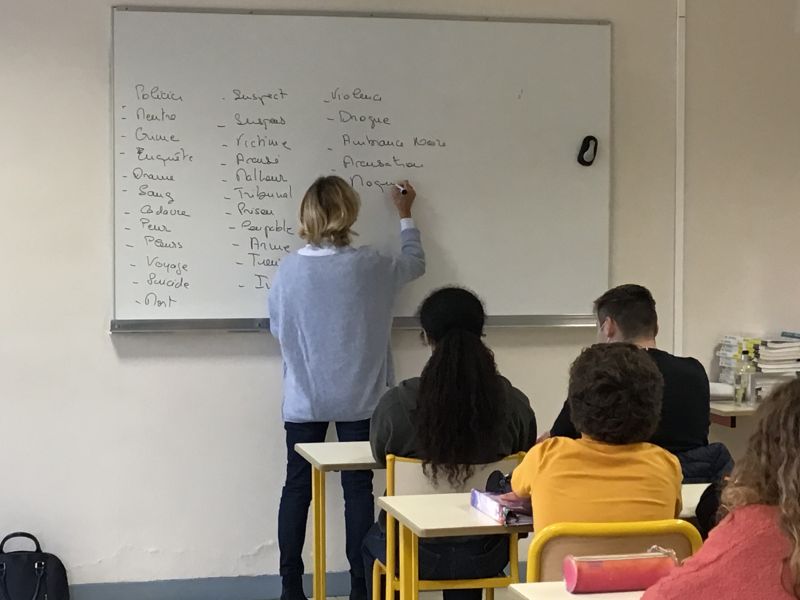 Policier
- Meutre
- Crime
- Enquête
- Drame
- Sang
- Cadavre
- Peur
- Pleurs
- Voyage
- Suicide
- Mort
- Suspect
- Suspens
- Victime
- Accusé
- Malheur
- Tribunal
- Prison
- Coupable
- Arme
- Violence
- Drogue
- Ambiance Noire
- Accusation